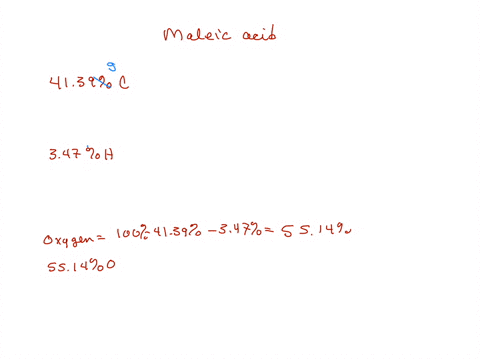 Maleic acid
g
41.39% C
3.47% H
Oxygen = 100% - 41.39% - 3.47% = 55.14%
55.14% O